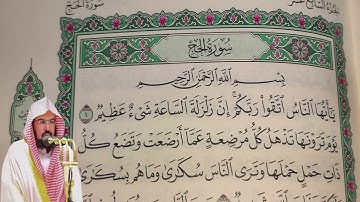 سُورَةُ الحَجِّ
الجُزْءُ السَّابِعَ عَشَرَ
سُورَةُ الحَجِّ
بِسْمِ اللَّهِ الرَّحْمَٰنِ الرَّحِيمِ
يَٰٓأَيُّهَا ٱلنَّاسُ ٱتَّقُوا۟ رَبَّكُمْ إِنَّ زَلْزَلَةَ ٱلسَّاعَةِ شَىْءٌ عَظِيمٌ ١
يَوْمَ تَرَوْنَهَا تَذْهَلُ كُلُّ مُرْضِعَةٍ عَمَّآ أَرْضَعَتْ وَتَضَعُ كُلُّ
ذَاتِ حَمْلٍ حَمْلَهَا وَتَرَى ٱلنَّاسَ سُكَٰرَىٰ وَمَا هُم بِسُكَٰرَىٰ